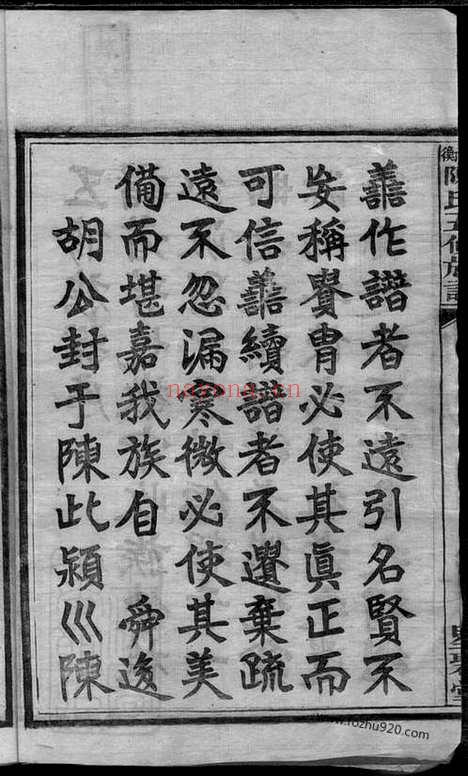 衡陽陳氏五修族譜
善作譜者不遠引名賢不
妄稱貴胄必使其眞正而
可信善續譜者不遽棄疏
遠不忽漏寒微必使其美
備而堪嘉我族自 舜逸
胡公封于陳此潁川陳
nayona.cn
www.rozhu920.com